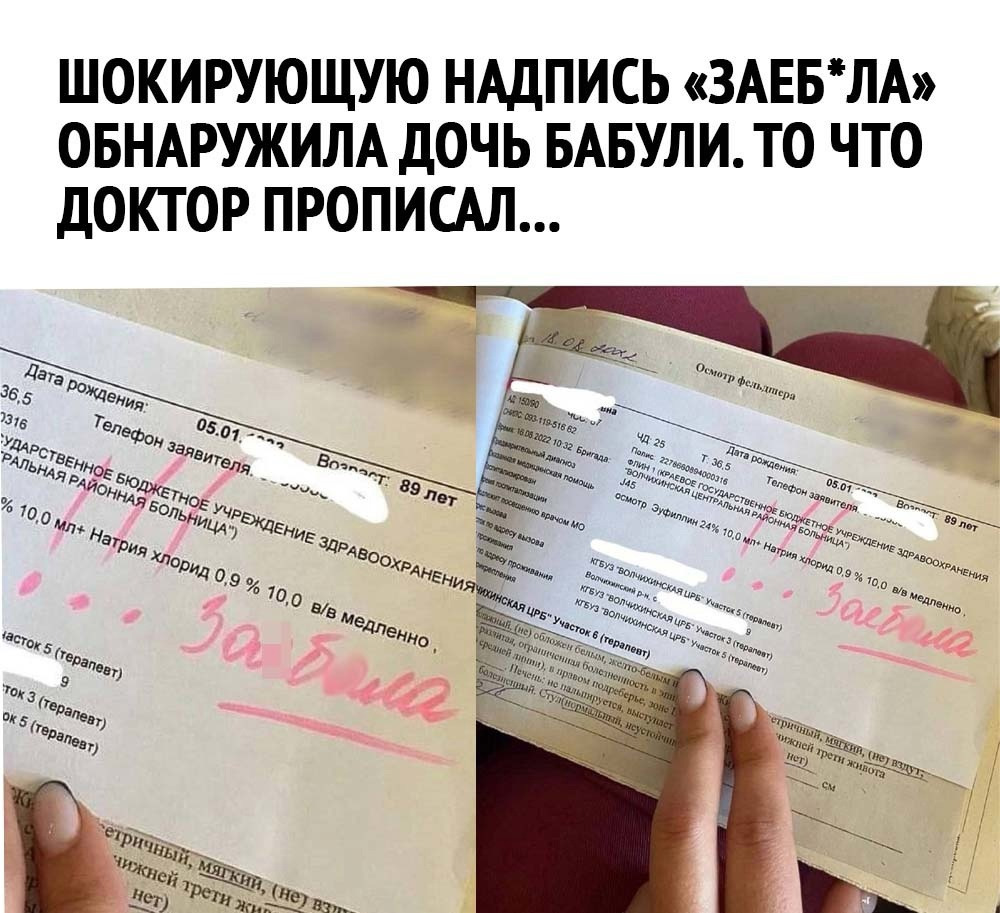 ШОКИРУЮЩУЮ НАДПИСЬ «ЗАЕБ*ЛА»
ОБНАРУЖИЛА ДОЧЬ БАБУЛИ. ТО ЧТО
ДОКТОР ПРОПИСАЛ...
Дата рождения:
05.01.
36,5
Телефон заявителя
Возраст: 89 лет
0316
СУДАРСТВЕННОЕ БЮДЖЕТНОЕ УЧРЕЖДЕНИЕ ЗДРАВООХРАНЕНИЯ
РАЛЬНАЯ РАЙОННАЯ БОЛЬНИЦА")
% 10,0 мл+ Натрия хлорид 0,9 % 10,0 в/в медленно,
!!!
Зае бала
часток 5 (терапевт)
9
ток 3 (терапевт)
ок 5 (терапевт)
етричный, мягкий, (не)
нижней трети жи
нет)
18.08.2022
Осмотр фельдшера
вна
АД: 150/90
ЧД: 25
Т: 36,5
Дата рождения:
05.01
Возраст: 89 лет
СНИЛС: 093-119-516 62
Полис: 2278660894000316
Телефон заявителя
Время: 16.08.2022 10:32 Бригада:
ФЛИН 1 (КРАЕВОЕ ГОСУДАРСТВЕННОЕ БЮДЖЕТНОЕ УЧРЕЖДЕНИЕ ЗДРАВООХРАНЕНИЯ
"ВОЛЧИХИНСКАЯ ЦЕНТРАЛЬНАЯ РАЙОННАЯ БОЛЬНИЦА")
Предварительный диагноз
J45
Оказанная медицинская помощь
осмотр Эуфиллин 24% 10,0 мл+ Натрия хлорид 0,9 % 10,0 в/в медленно,
!!!
... Заебала
КГБУЗ "ВОЛЧИХИНСКАЯ ЦРБ" Участок 5 (терапевт)
Волчихинский р-н, с
9
КГБУЗ "ВОЛЧИХИНСКАЯ ЦРБ" Участок 3 (терапевт)
КГБУЗ "ВОЛЧИХИНСКАЯ ЦРБ" Участок 5 (терапевт)
ЧИХИНСКАЯ ЦРБ" Участок 6 (терапевт)
(не) обложен белым, желто-белым
разлитая, ограниченная болезненность в
средней линии), в правом подреберье, зоне
Печень: не пальпируется, выступает
болезненный. Стул(нормальный, неустойчив
етричный, мягкий, (не) вздут,
нижней трети живота
нет)
см